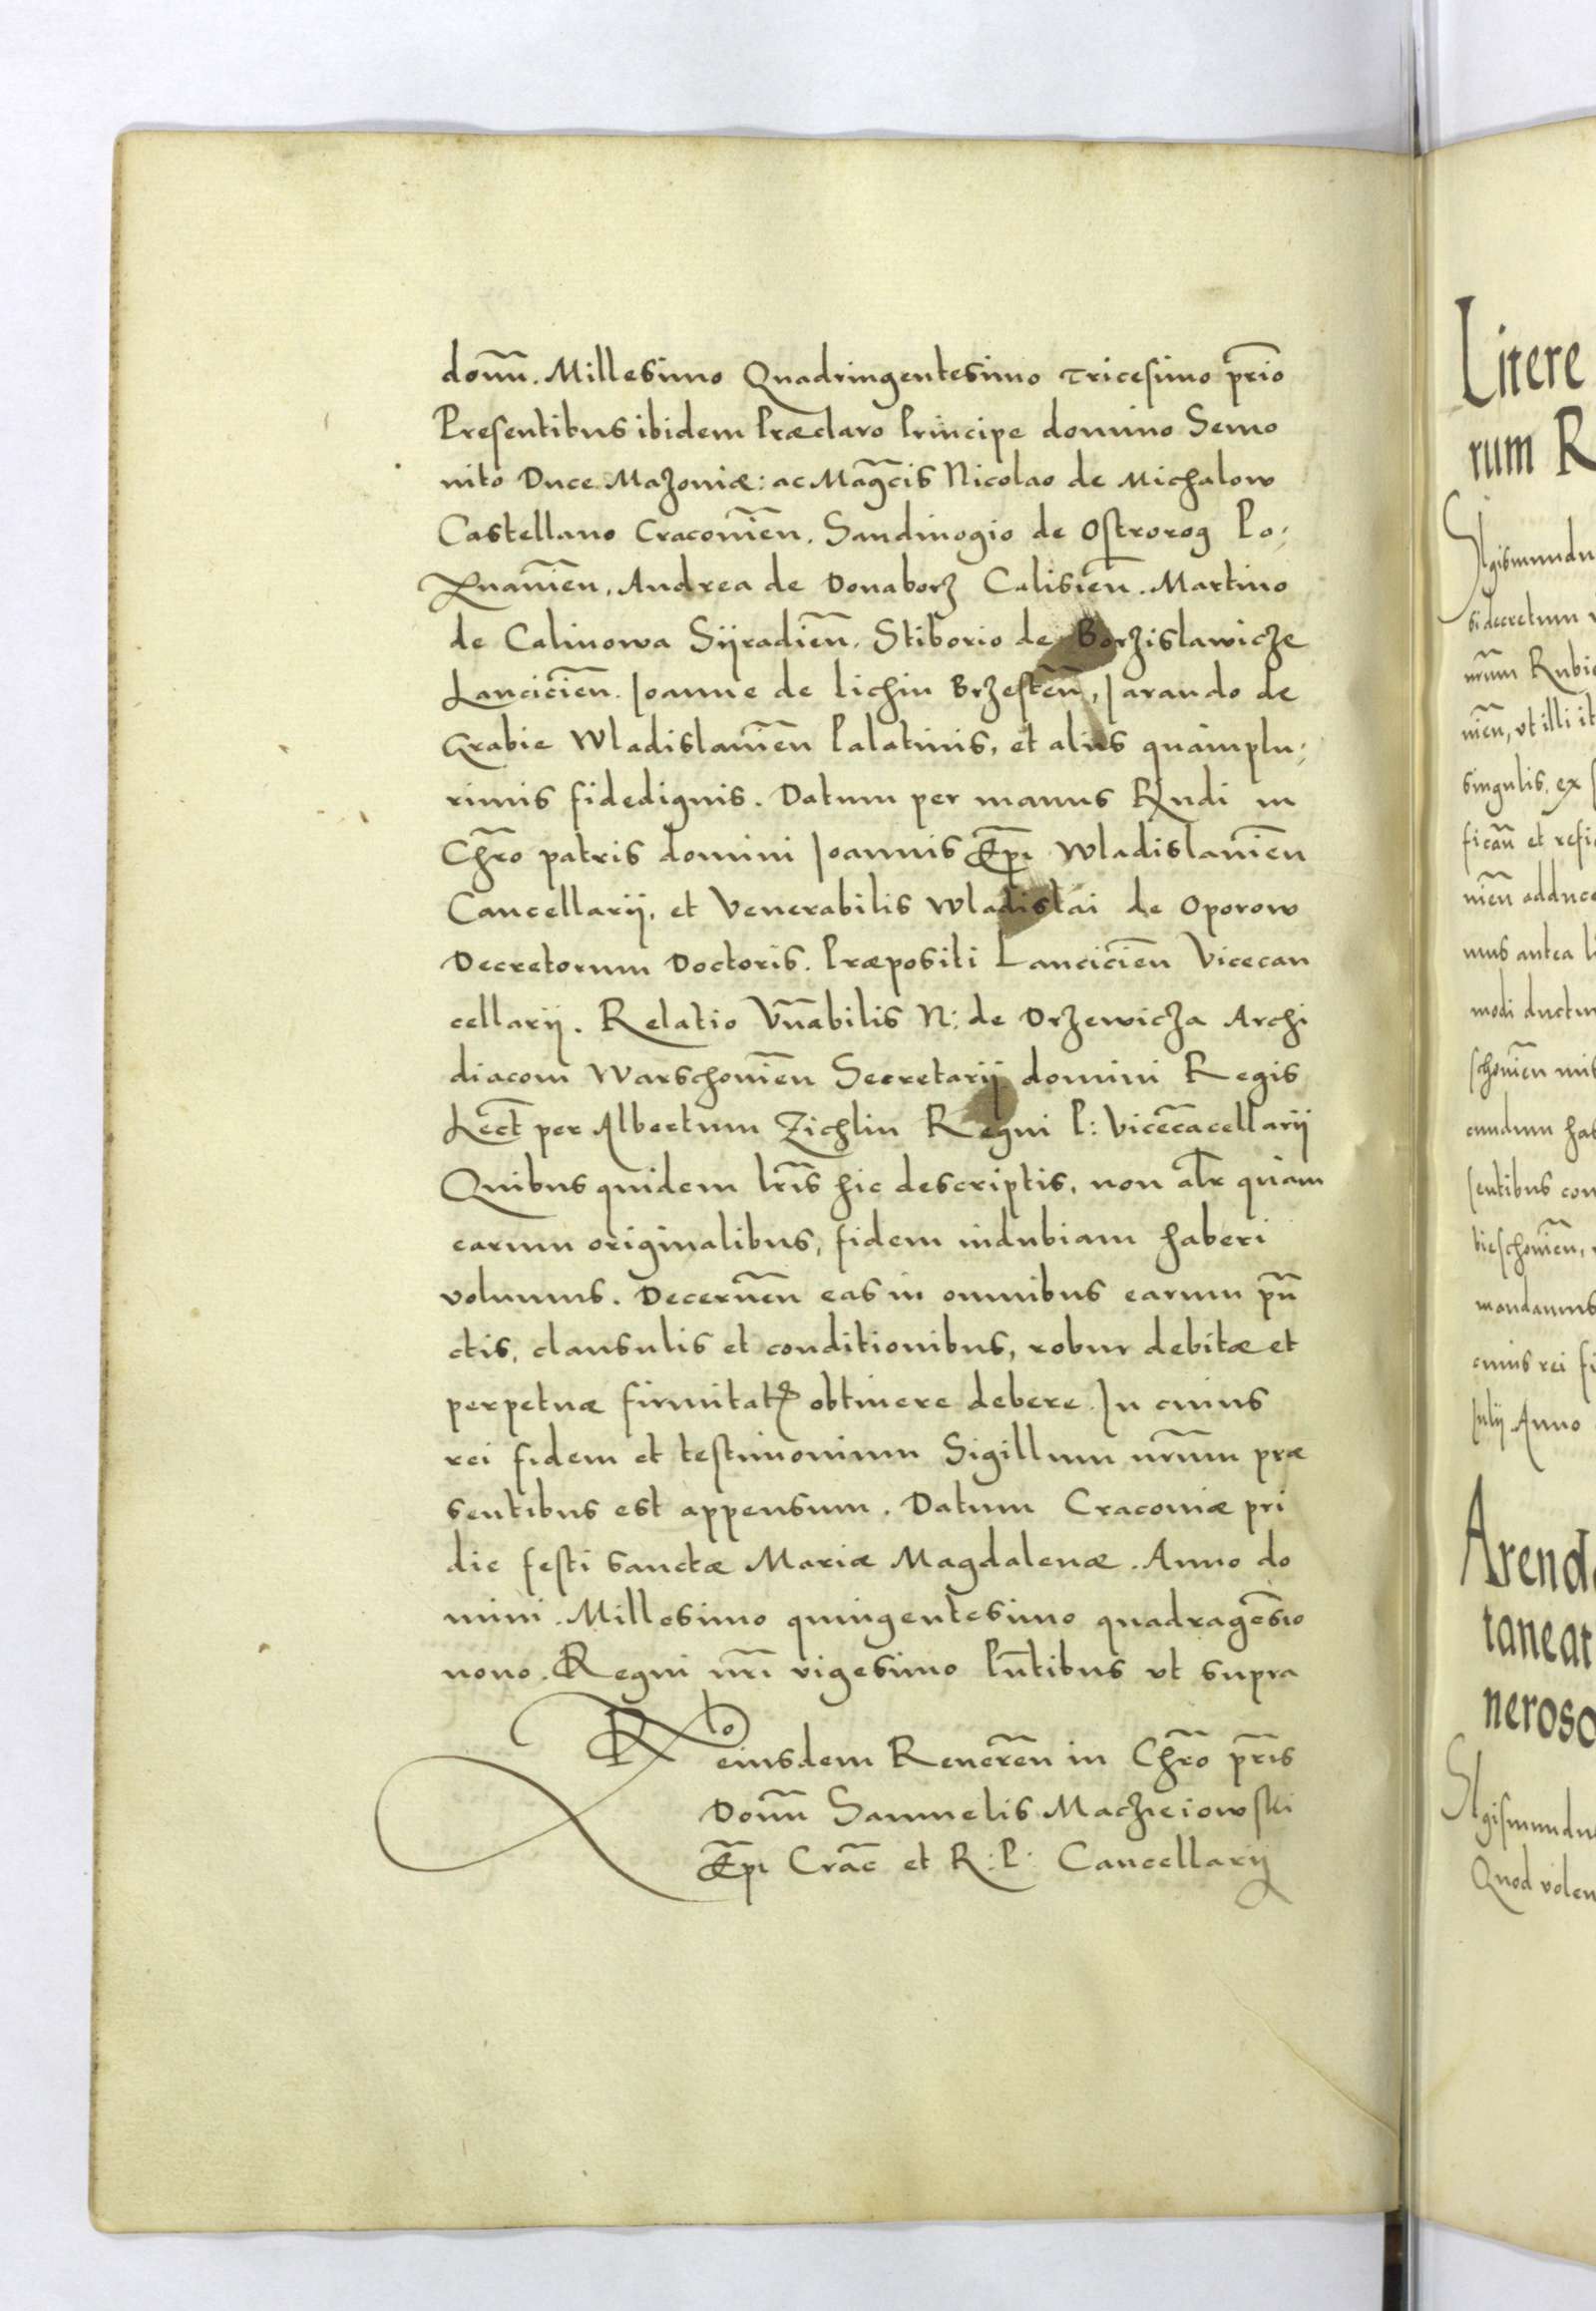 domn̄. Millesimo Quadringentesimo Tricesimo prīo
Presentibus ibidem Præclaro Principe domino Semo
uito Duce Mazouiæ: ac Mag̅cis Nicolao de Michalow
Castellano Cracouien̄. Sandiuogio de Ostrorog Po,
znanien̄, Andrea de Donaborz Calisien̄. Martino
de Calinowa Sijradien̄. Stiborio de Borzislawicze
Lancicien̄. Joanne de Lichin Brzesten̄, Jarando de
Grabie Wladislauien̄ Palatinis, et alijs quàmplu,
rimis fidedignis. Datum per manus Rn̄di in
Chr̄o patris domini Joannis Ep̄i Wladislauien̄
Cancellarij, et Venerabilis Wladislai de Oporow
Decretorum Doctoris. Præpositi Lancicien̄ Vicecan
cellarij. Relatio Vn̄abilis N: de Drzewicza Archi
diaconi Warschouien̄ Secretarij domini Regis
Lect̄ per Albertum Zichlin Regni P: Vicecācellarij
Quibus quidem lr̄is hic descriptis, non al̄r quàm
earum originalibus, fidem indubiam haberi
volumus. Decernen̄ eas in omnibus earum pūn
ctis, clausulis et conditionibus, robur debitæ et
perpetuæ firmitatꝭ obtinere debere. In cuius
rei fidem et testimonium Sigillum nr̄um præ
sentibus est appensum. Datum Cracouiæ pri
die festi sanctæ Mariæ Magdalenæ. Anno do
mini. Millesimo quingentesimo quadragesīo
nono. Regni nr̄i vigesimo Pn̄tibus vt supra
Rº
eiusdem Reueren̄ in Chr̄o pr̄is
Domn̄ Samuelis Maczieiowski
Ep̄i Crac̄ et R: P: Cancellarij
Litere
rum R
Sigismundu
si decretum
nr̄um Rubi
uien̄, vt illi it
singulis, ex
fican̄ et refi
uien̄ adduce
mus antea l
modi ductu
schouien̄ mis
cundum hab
sentibus con
bieschouien̄,
mandamus
cuius rei fi
Julij Anno
Arenda
taneat
neroso
Sigismundu
Quod volen